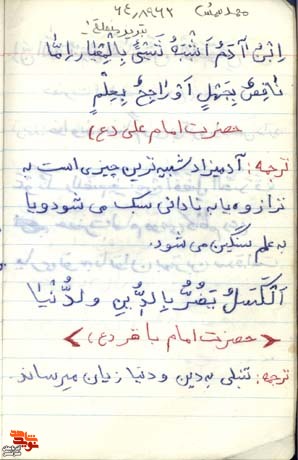 اِبْنُ آدَمَ اَشْبَهُ شَیْئیً بِالْمِعْیارِ اِمّا
ناقِصٌ بِجَهْلٍ اَوْراجِحٌ بِعِلْمٍ
حضرت امام علی (ع)
ترجمه: آدمیزاد شبیه ترین چیزی است به
ترازو و یا به نادانی سبک می شود و یا
به علم سنگین می شود.
اَلْکَسَلُ یَضُرُّ بِالدّینِ ولدُّنْیا
حضرت امام باقر (ع)
ترجمه: تنبلی به دین و دنیا زیان میرساند.